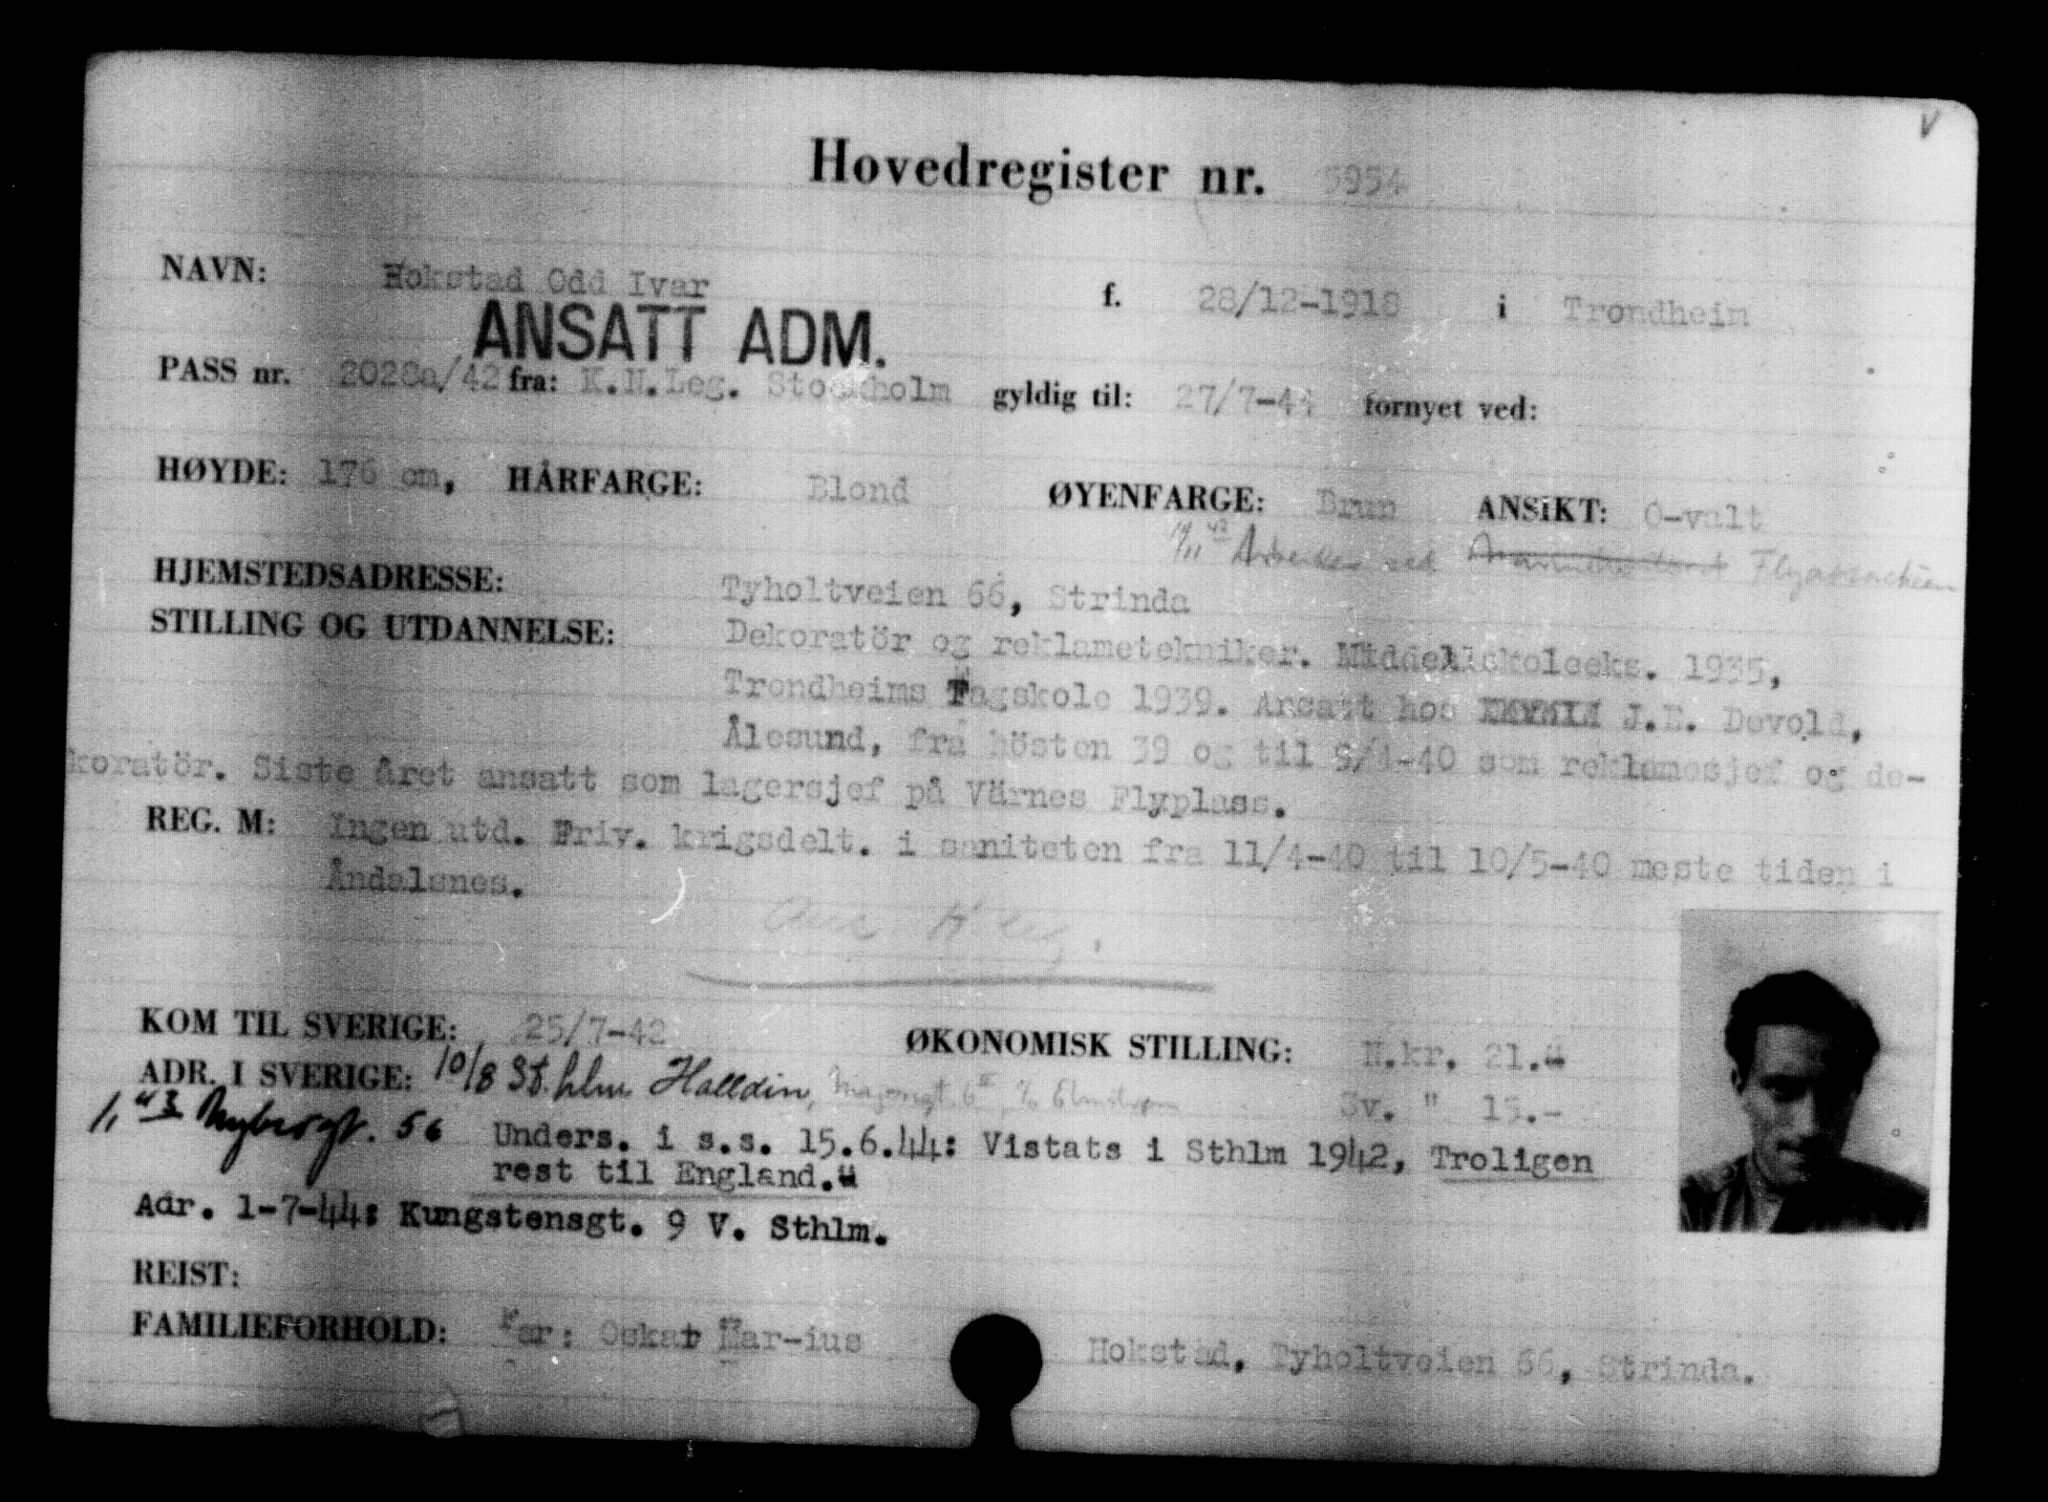 V
Hovedregister nr. 5954
NAVN: Hokstad Odd Ivar f. 28/12-1918 i Trondheim
ANSATT ADM.
PASS nr. 2028a/42 fra: K.N.Leg. Stockholm gyldig til: 27/7-44 fornyet ved:
HØYDE: 176 cm, HÅRFARGE: Blond ØYENFARGE: Brun ANSIKT: O-valt
ved Flyattacheen
HJEMSTEDSADRESSE: Tyholtveien 66, Strinda
STILLING OG UTDANNELSE: Dekoratör og reklametekniker. Middelskoleeks. 1935,
Trondheims Fagskole 1939. Ansatt hos J.E. Devold,
Ålesund, fra hösten 39 og til 9/4-40 som reklamesjef og de-
koratör. Siste året ansatt som lagersjef på Värnes Flyplass.
REG. M: Ingen utd. Friv. krigsdelt. i saniteten fra 11/4-40 til 10/5-40 meste tiden i
Åndalsnes.
KOM TIL SVERIGE: 25/7-42 ØKONOMISK STILLING: N.kr. 21.-
ADR. I SVERIGE: 10/8 St.hlm Halldin, Sv. " 15.-
1/1 43 Nybergt. 56 Unders. i s.s. 15.6.44: Vistats i Sthlm 1942, Troligen
rest til England."
Adr. 1-7-44: Kungstensgt. 9 V. Sthlm.
REIST:
FAMILIEFORHOLD: Far: Oskar Mar-ius Hokstad, Tyholtveien 66, Strinda.